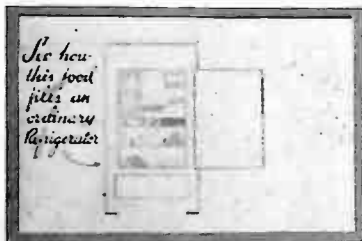 See how
this food
fills an
ordinary
Refrigerator